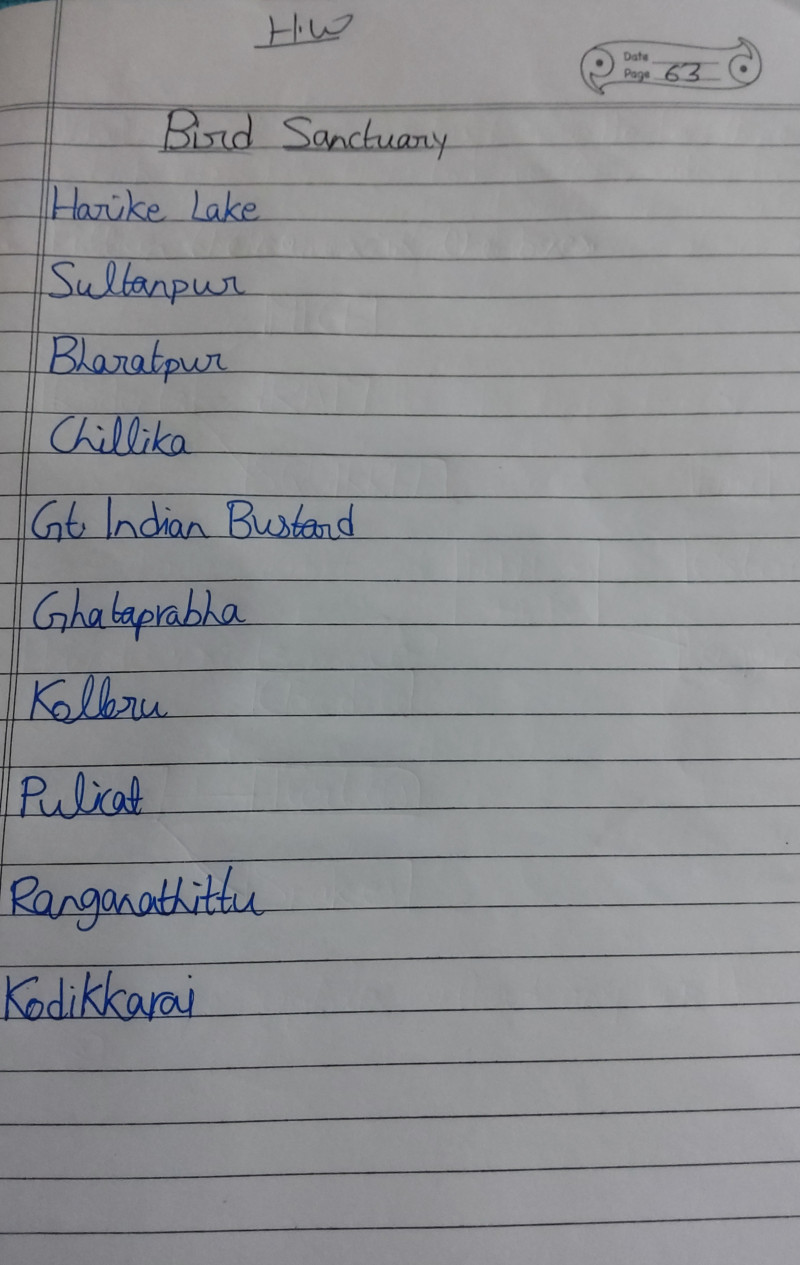 H.W
Date
Page 63
Bird Sanctuary
Harike Lake
Sultanpur
Bharatpur
Chillika
Gt. Indian Bustard
Ghataprabha
Kolleru
Pulicat
Ranganathittu
Kodikkarai